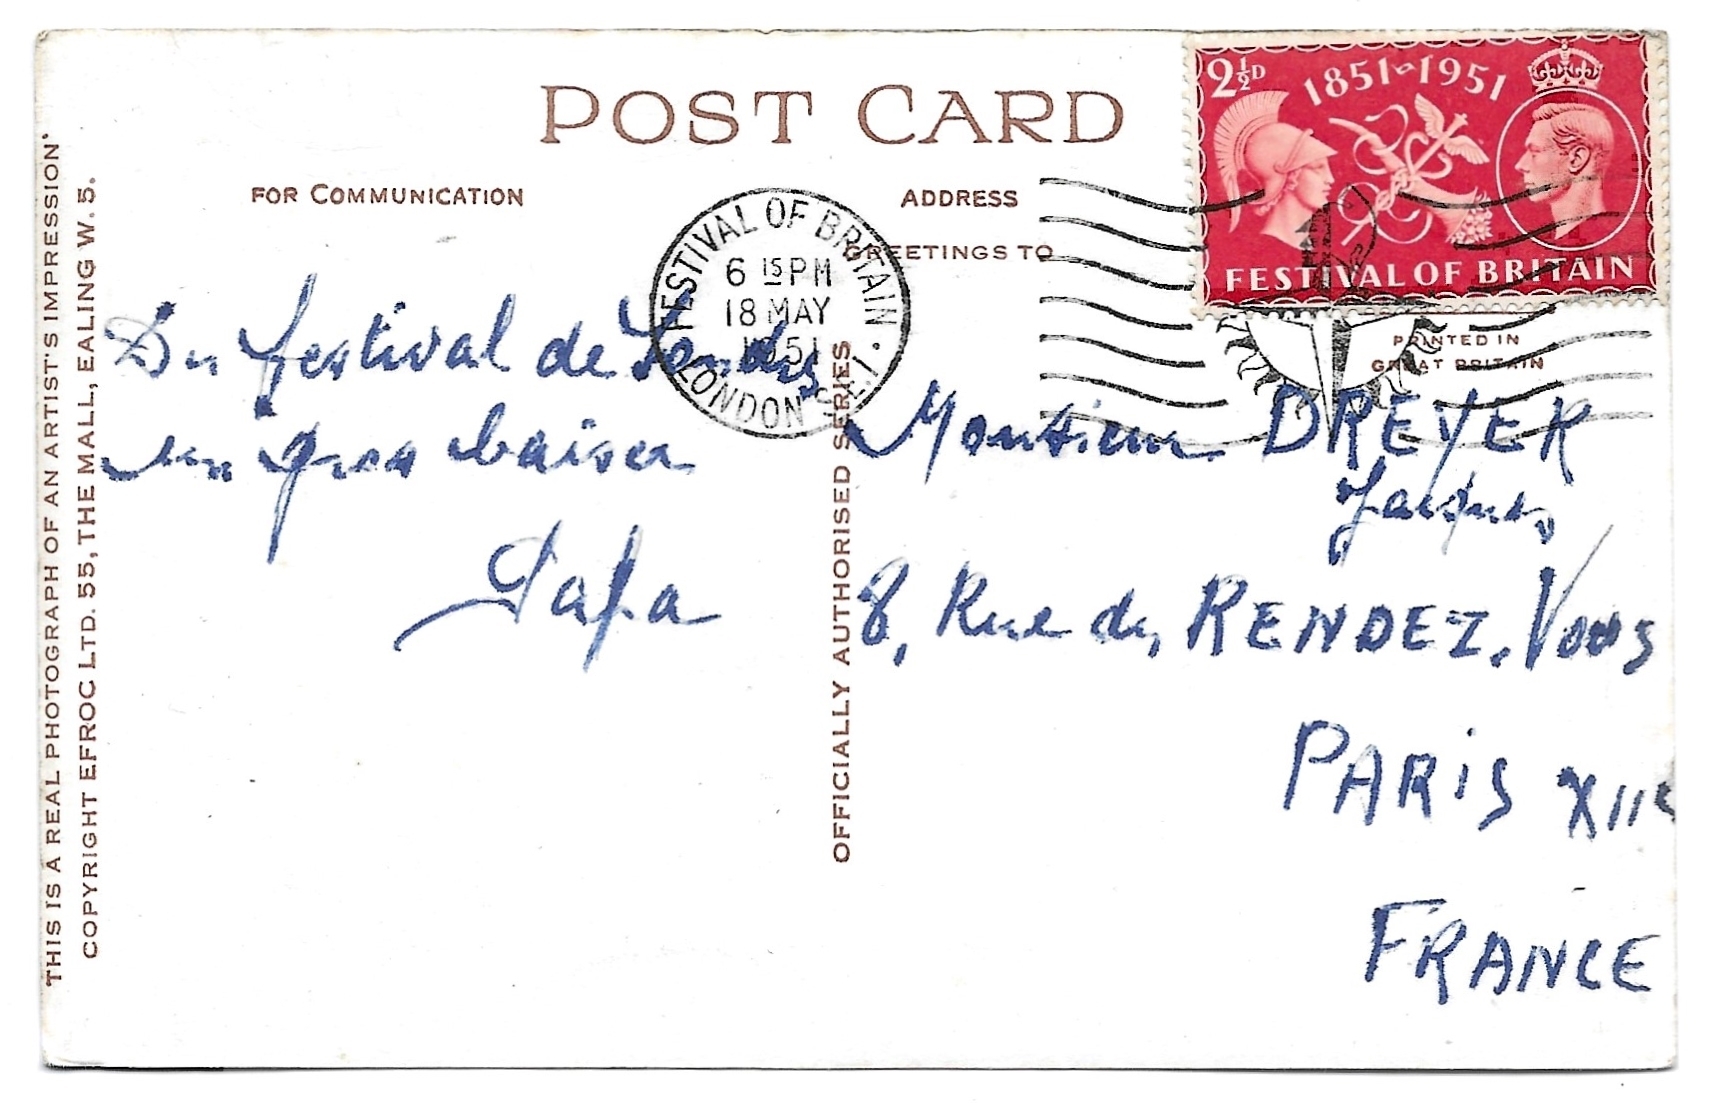 POST CARD
FOR COMMUNICATION
ADDRESS
GREETINGS TO
2½D
1851-1951
FESTIVAL OF BRITAIN
PRINTED IN
GREAT BRITAIN
FESTIVAL OF BRITAIN
6 15 PM
18 MAY
1951
LONDON S.E.1.
Du festival de Londres
un gros baiser
Papa
Monsieur DREYER
Jacques
8, Rue du RENDEZ-VOUS
PARIS XIIe
FRANCE
OFFICIALLY AUTHORISED SERIES
THIS IS A REAL PHOTOGRAPH OF AN ARTIST'S IMPRESSION'
COPYRIGHT EFROC LTD. 55, THE MALL, EALING W. 5.